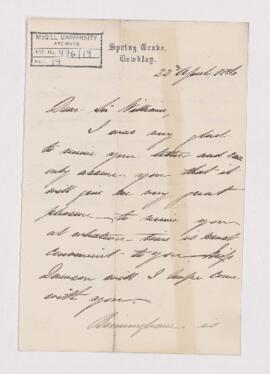 McGILL UNIVERSITY
ARCHIVES
ACC. No. 976/19
REF. 19
Spring Grove,
Bewdley.
22nd April 1886
Dear Sir William,
I was very glad
to receive your letter and can
only assure you that it
will give me very great
pleasure to receive you
at whatever time is most
convenient to you. Miss
Dawson will I hope come
with you.
Birmingham is